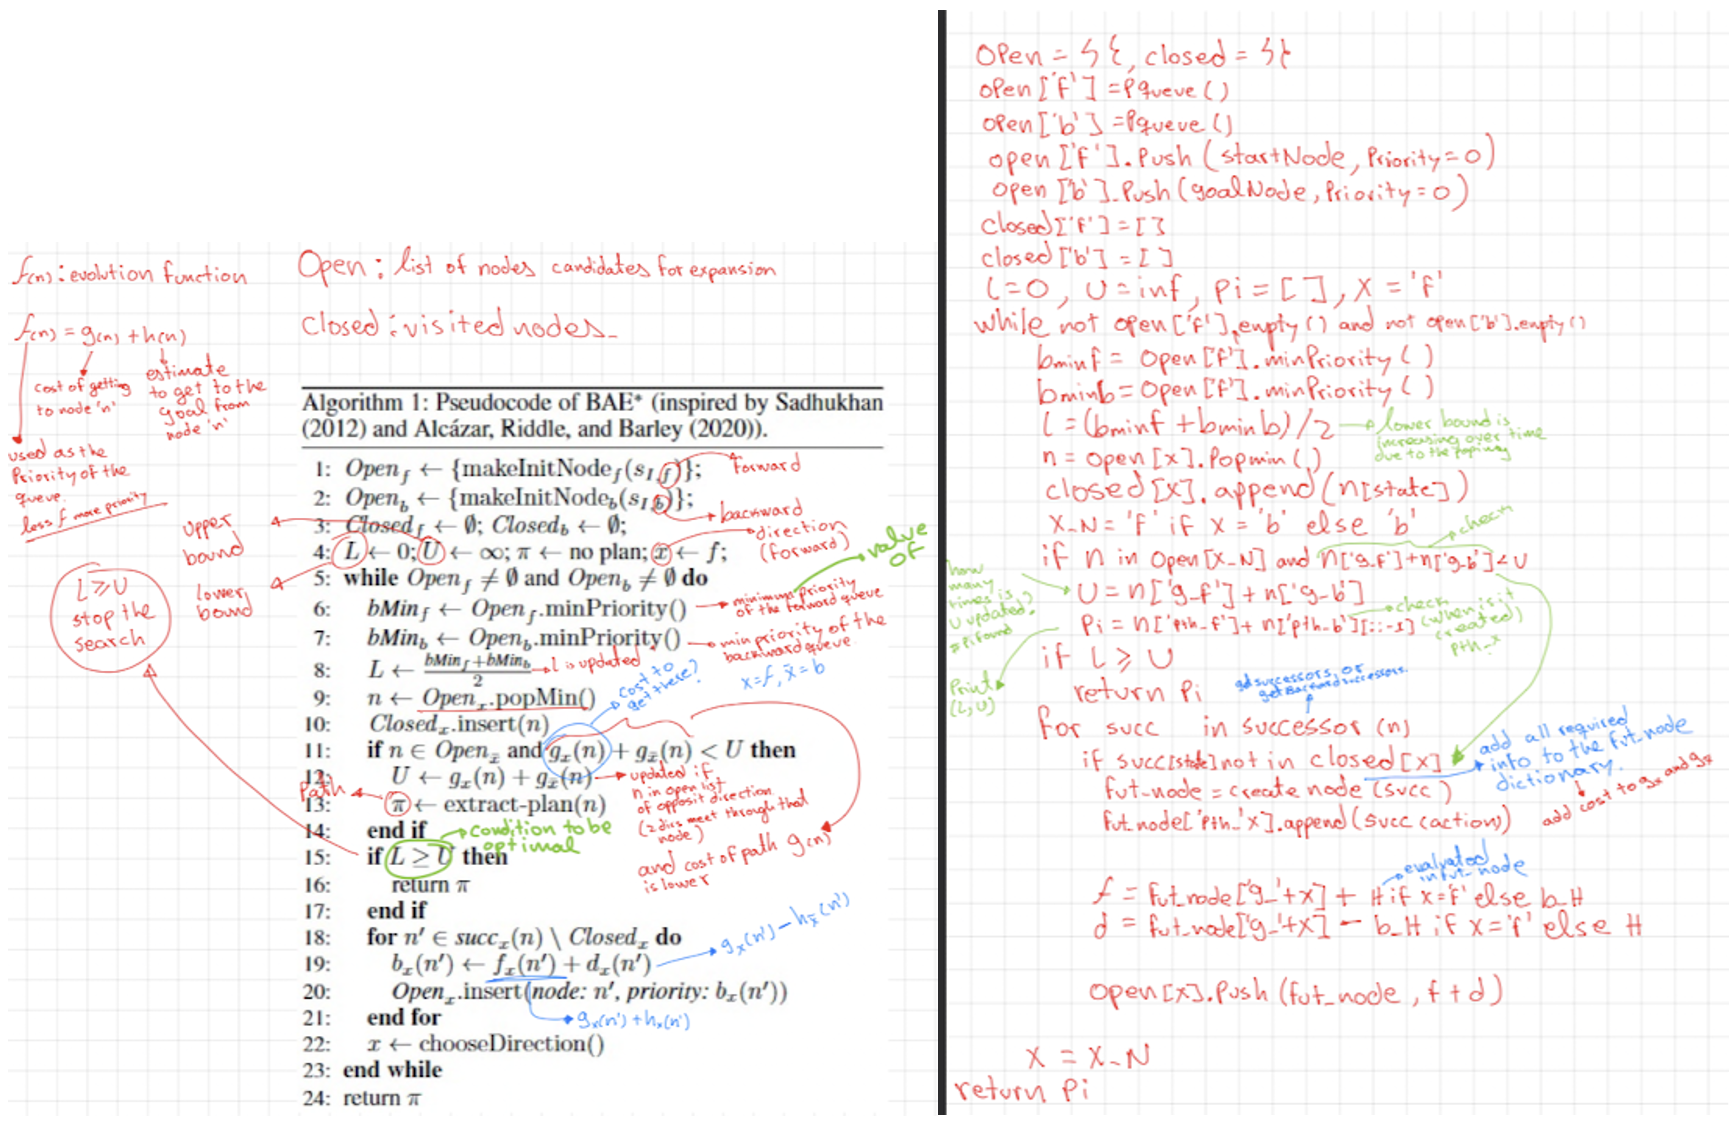 f(n) : evolution function
f(n) = g(n) + h(n)
cost of getting
to node 'n'
estimate
to get to the
goal from
node 'n'
used as the
Priority of the
queue.
less f more priority
Open : list of nodes candidates for expansion
Closed : visited nodes_
upper
bound
lower
bound
L ≥ U
stop the
search
Path
Algorithm 1: Pseudocode of BAE* (inspired by Sadhukhan
(2012) and Alcázar, Riddle, and Barley (2020)).
1: Open_f ← {makeInitNode_f(s_I,f)};
forward
2: Open_b ← {makeInitNode_b(s_I,b)};
backward
3: Closed_f ← ∅; Closed_b ← ∅;
direction
(forward)
4: L ← 0; U ← ∞; π ← no plan; x ← f;
value
of
5: while Open_f ≠ ∅ and Open_b ≠ ∅ do
6: bMin_f ← Open_f.minPriority()
minimum priority
of the forward queue
7: bMin_b ← Open_b.minPriority()
min priority of the
backward queue
8: L ← bMin_f+bMin_b / 2
L is updated
x=f, x̄=b
9: n ← Open_x.popMin()
cost to
get there?
10: Closed_x.insert(n)
11: if n ∈ Open_x̄ and g_x(n) + g_x̄(n) < U then
12: U ← g_x(n) + g_x̄(n)
updated if
n in open list
of opposit direction
(2 dirs meet through that
node)
and cost of path g(n)
is lower
13: π ← extract-plan(n)
14: end if
condition to be
optimal
15: if L ≥ U then
16: return π
17: end if
18: for n' ∈ succ_x(n) \ Closed_x do
19: b_x(n') ← f_x(n') + d_x(n')
g_x(n') − h_x̄(n')
20: Open_x.insert(node: n', priority: b_x(n'))
g_x(n') + h_x(n')
21: end for
22: x ← chooseDirection()
23: end while
24: return π
Open = {}, closed = {}
open['f'] = Pqueue()
open['b'] = Pqueue()
open['f'].Push(startNode, Priority=0)
open['b'].Push(goalNode, Priority=0)
closed['f'] = []
closed['b'] = []
l=0, U=inf, Pi=[], X='f'
while not open['f'].empty() and not open['b'].empty()
bminf = Open['f'].minPriority()
bminb = Open['f'].minPriority()
l = (bminf + bminb)/2
lower bound is
increasing over time
due to the
n = Open[x].Popmin()
closed[x].append(n[state])
X_N = 'f' if x = 'b' else 'b'
check
if n in open[X_N] and n['g_f']+n['g_b']<U
U = n['g_f'] + n['g_b']
how
many
times is
U updated
Pi found
Pi = n['pth_f'] + n['pth_b'][::-1]
check
(when is it
created)
pth_x
if L ≥ U
return Pi
Print
(L,U)
getsuccessors, or
getBackwardsuccessors.
for succ in successor(n)
if succ[state] not in closed[x]
add all required
info to the fut_node
dictionary.
add cost to gx and gx̄
fut_node = create node(succ)
fut_node['pth_'x].append(succ(action))
evaluated
in fut_node
f = fut_node['g_'+x] + H if x='f' else b_H
d = fut_node['g_'+x] − b_H if x='f' else H
Open[x].Push(fut_node, f+d)
X = X_N
return Pi